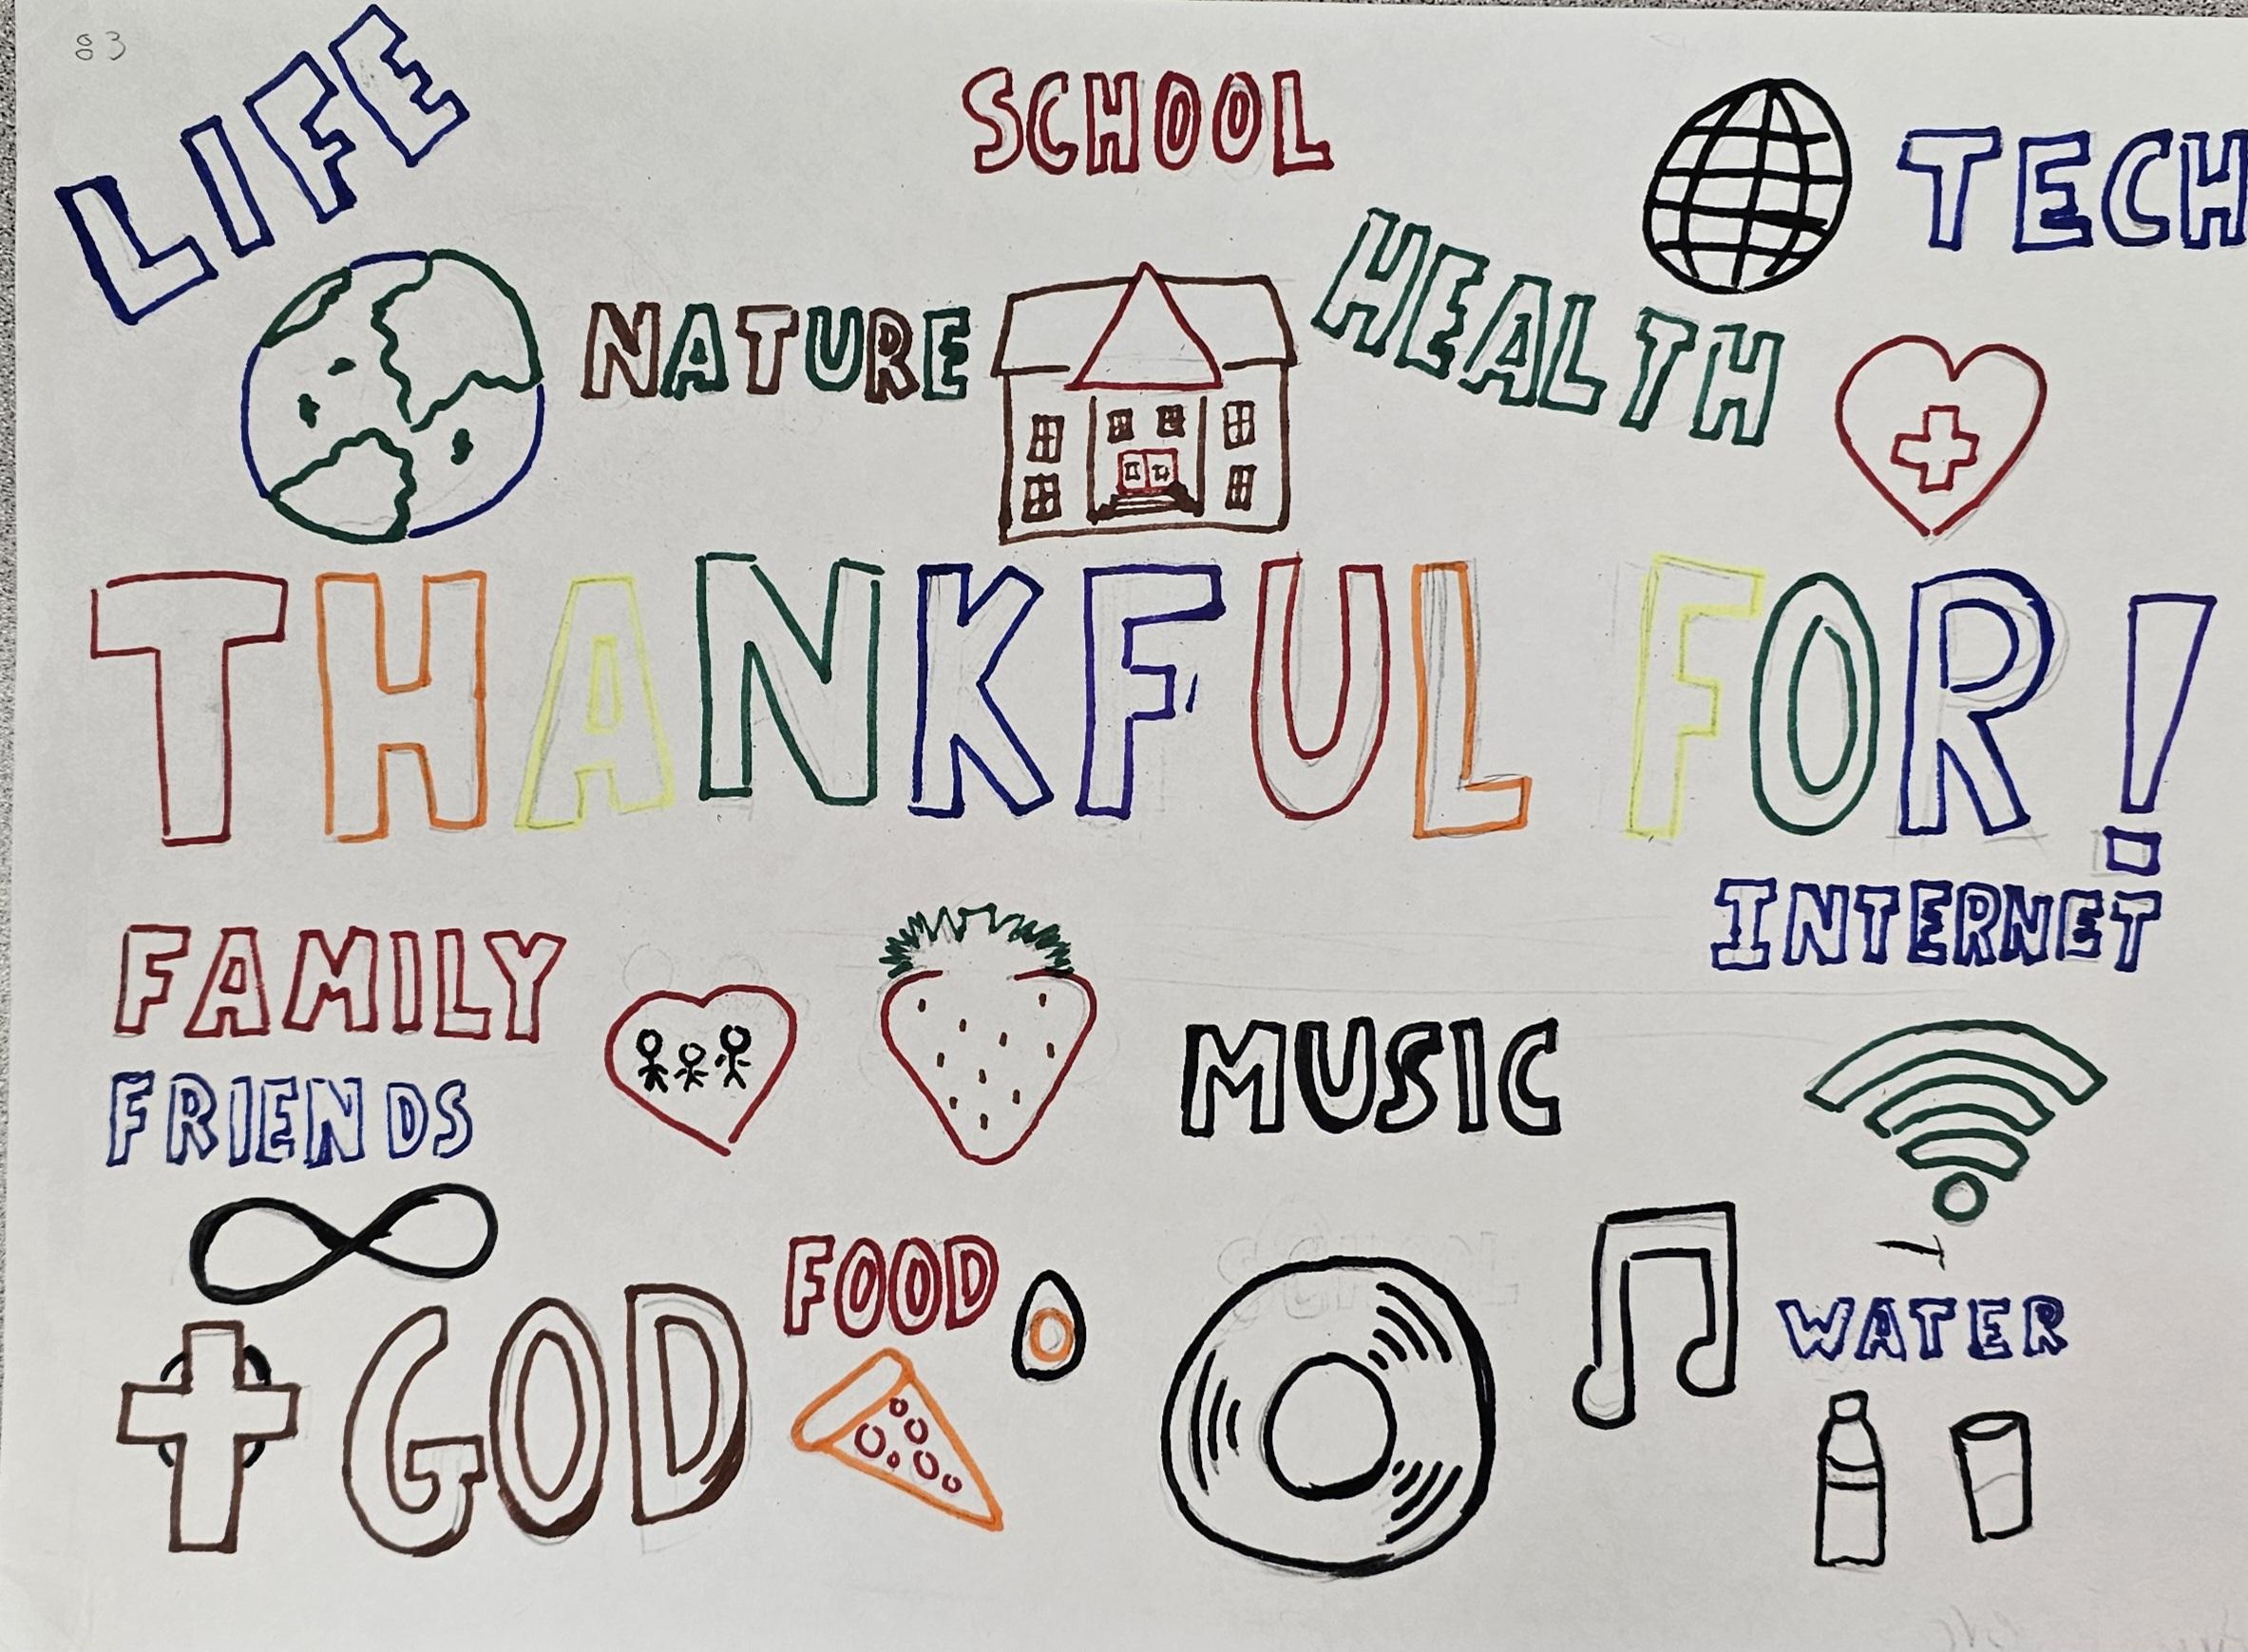 83
LIFE
SCHOOL
TECH
NATURE
HEALTH
THANKFUL FOR!
INTERNET
FAMILY
FRIENDS
MUSIC
FOOD
GOD
WATER